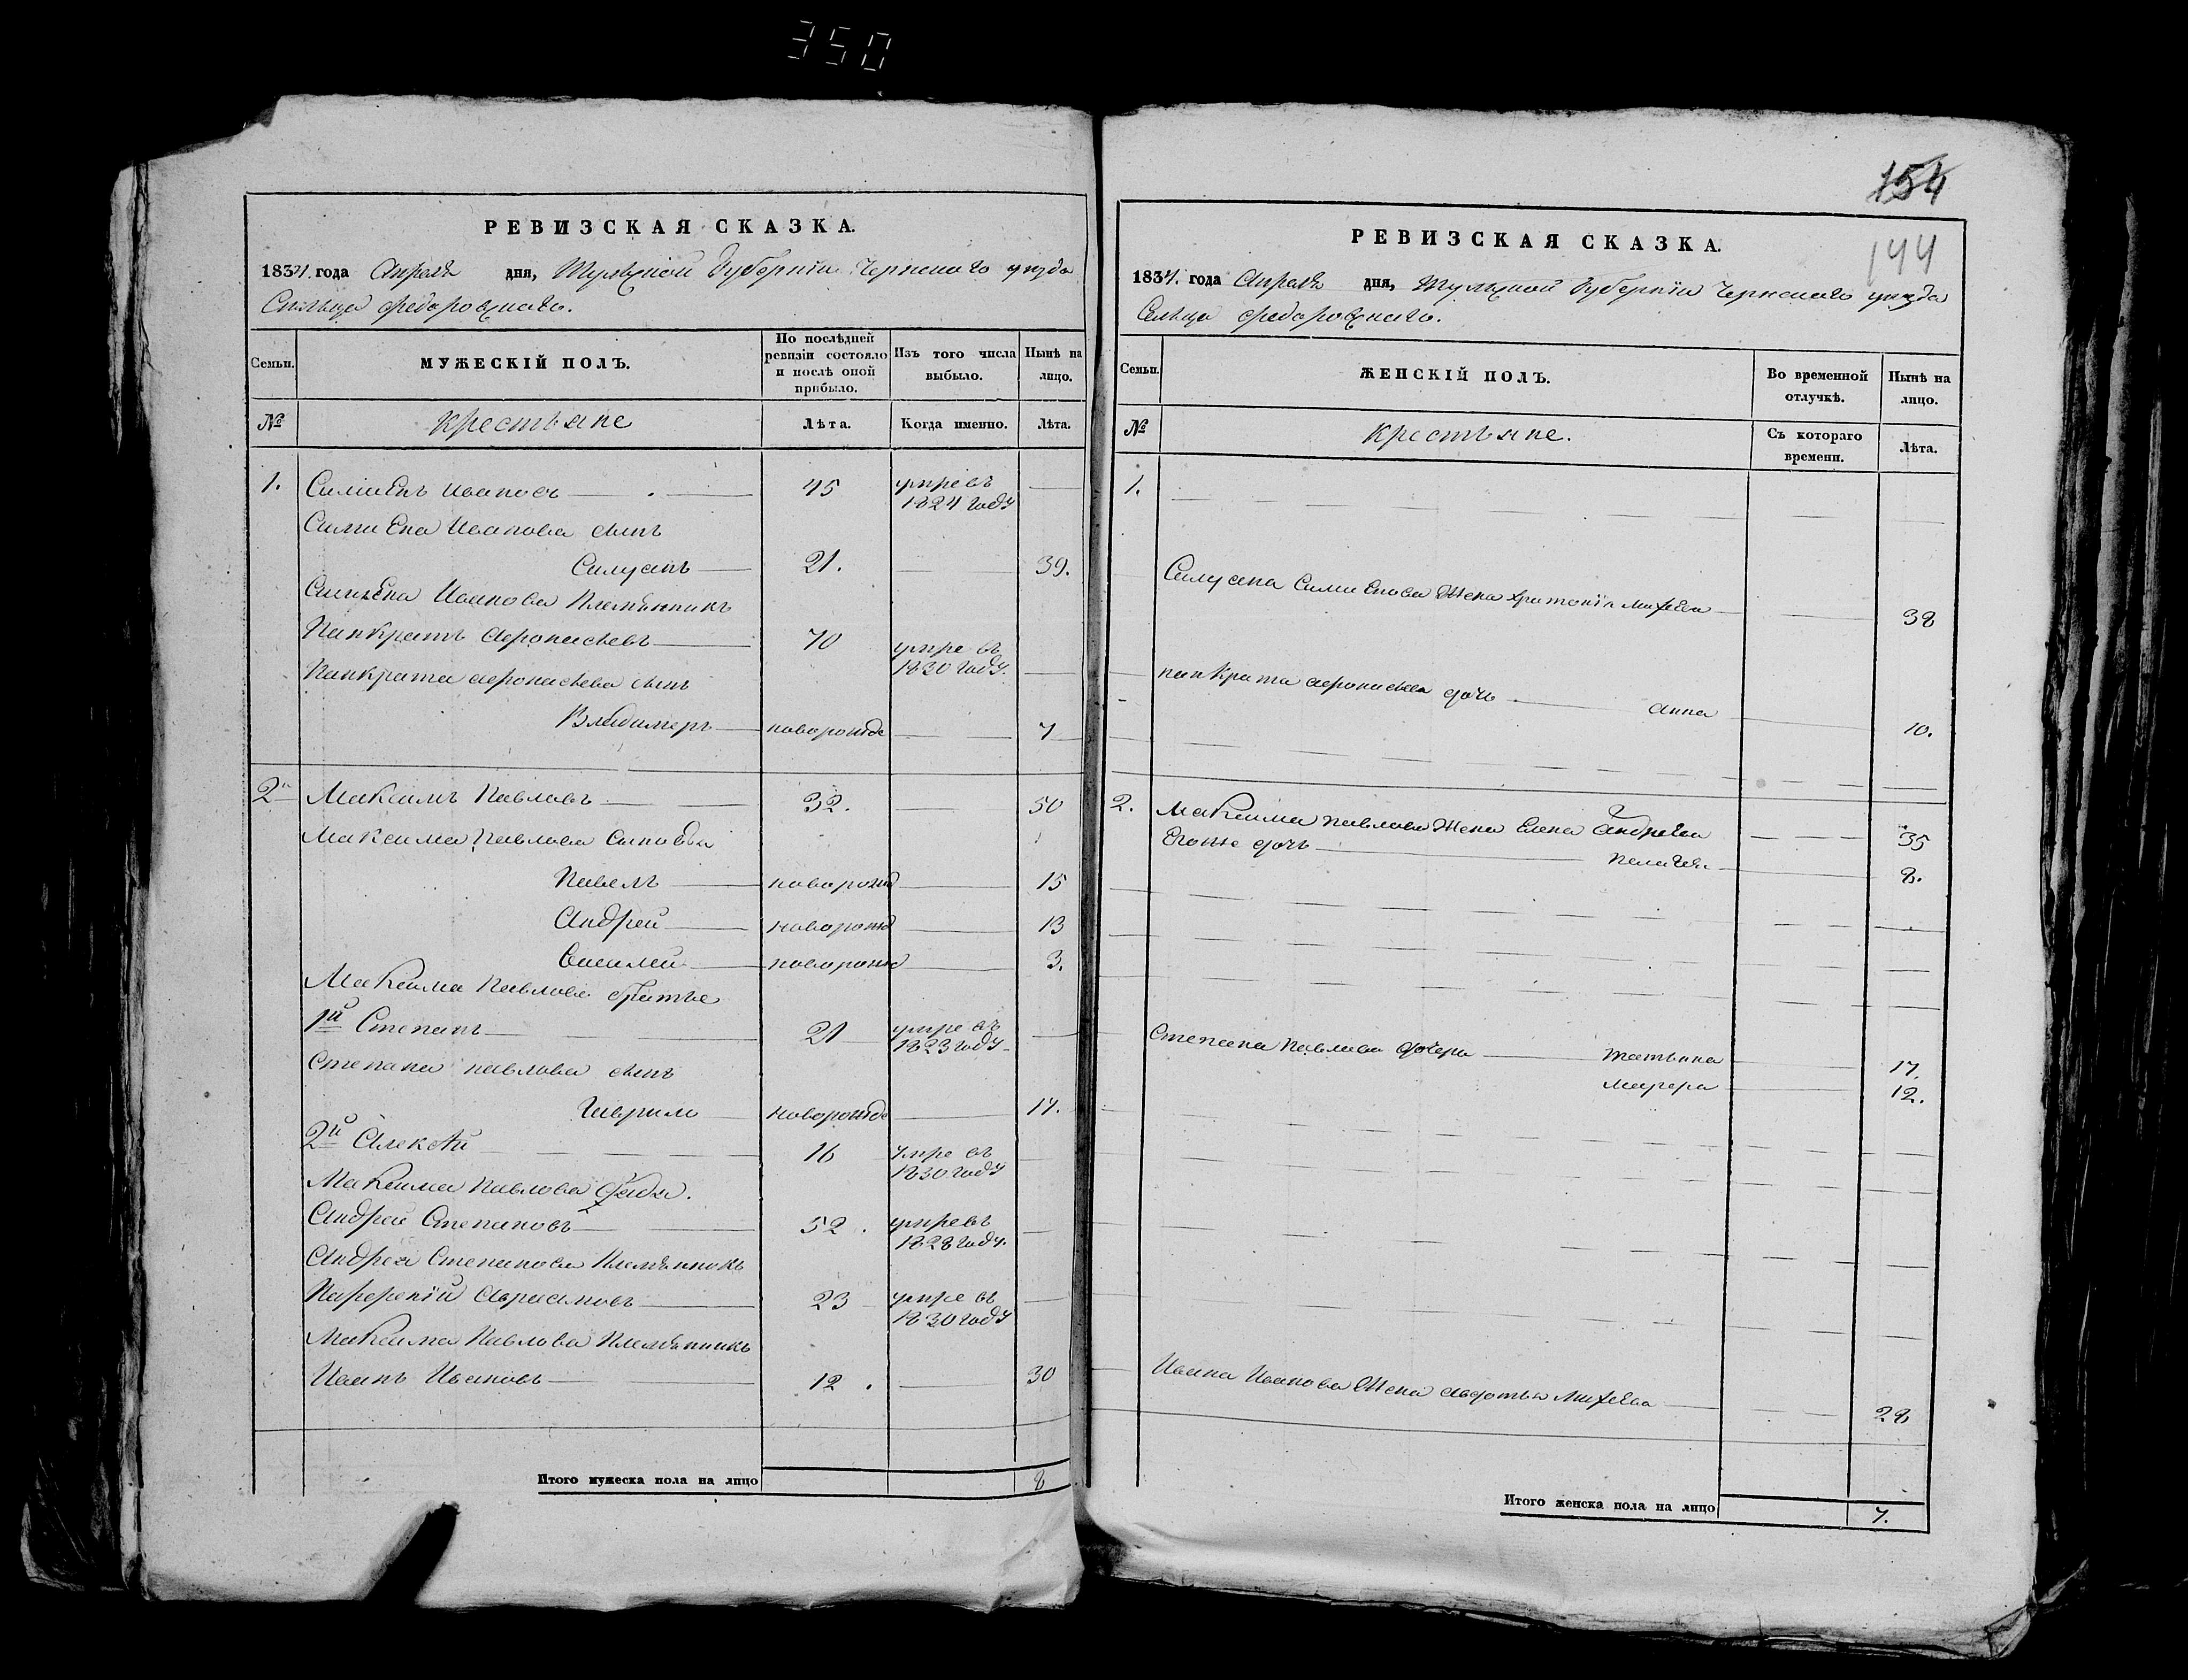 350
РЕВИЗСКАЯ СКАЗКА.
1834. года Апреля дня, Тульской Губернiи Чернского уезда
Сельца Федоровскаго.
Семьи.
МУЖЕСКIЙ ПОЛЪ.
По послѣдней ревизiи состояло и послѣ оной прибыло.
Изъ того числа выбыло.
Нынѣ на лицо.
№ крестьяне Лѣта. Когда именно. Лѣта.
1. Симиенъ Ивановъ 45 умре въ 1824 году
Симиена Иванова сынъ
Силуанъ 21. 39.
Симиена Иванова Племянникъ
Панкратъ Афонасьевъ 40 умре въ 1830 году.
Панкрата афонасьева сынъ
Владимеръ новорожде 7
2й Максимъ Павловъ 32. 50
Максима Павлова Сыновья
Павелъ новорожд 15
Андрей новорожд 13
Василий новорожд 3.
Максима Павлова братья
1й Степанъ 21 умре въ 1823 году
Степана павлова сынъ
Гаврило новорожде 17.
2й Алексѣй 16 умре въ 1830 году
Максима Павлова дядя.
Андрей Степановъ 52. умре въ 1828 году.
Андрея Степанова Племянникъ
Парфенiй 23 умре въ 1830 году
Максима Павлова Племянникъ
Иванъ Ивановъ 12. 30
Итого мужеска пола на лицо 8
154
144
РЕВИЗСКАЯ СКАЗКА.
1834. года Апреля дня, Тульской Губернiи Чернского уезда
Сельца Федоровскаго.
Семьи.
ЖЕНСКIЙ ПОЛЪ.
Во временной отлучкѣ.
Нынѣ на лицо.
№ крестьяне. Съ котораго времени. Лѣта.
1.
Силуана Симиенова Жена Михеева 38
панкрата афонасьева дочь анна 10.
2. Максима павлова Жена Елена Андреева 35
Егоже дочь Пелагея 8.
Степана Павлова дочери татьяна 17.
Марфа 12.
Ивана Иванова Жена авдотья Михеева 28
Итого женска пола на лицо 7.